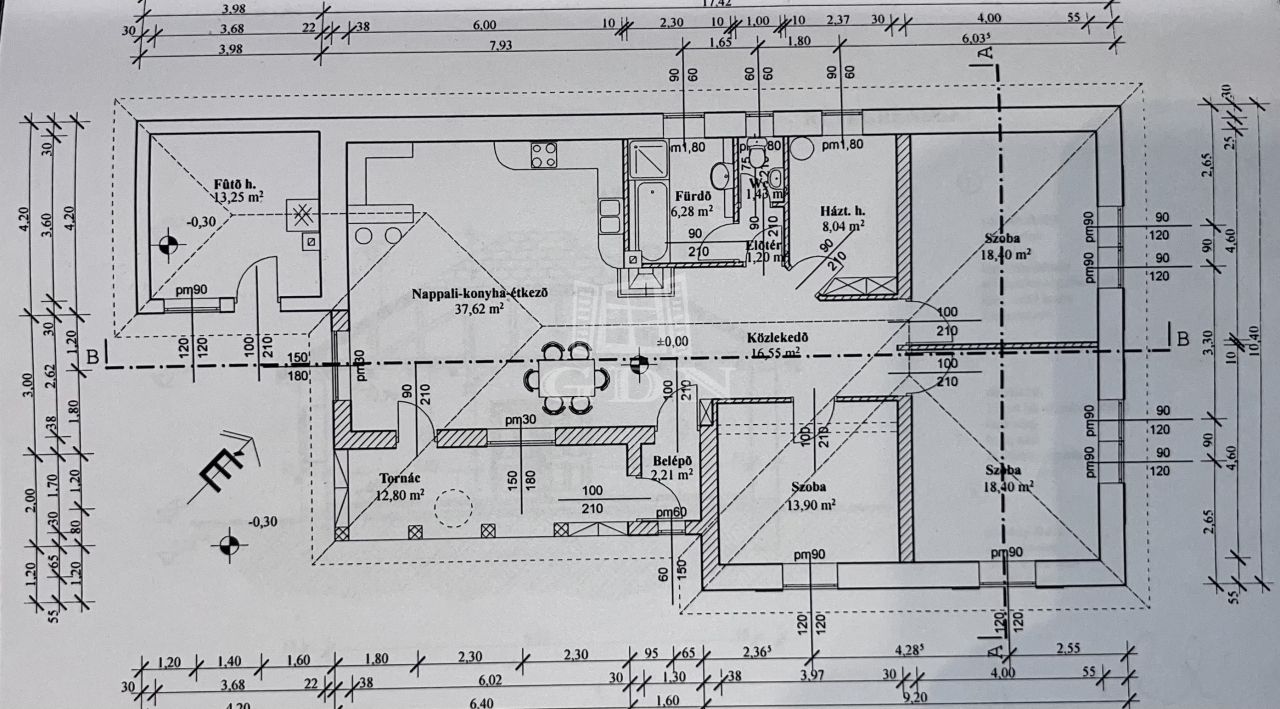 3,98
17,42
30
3,68
22
38
6,00
10
2,30
10
1,00
10
2,37
30
4,00
55
3,98
7,93
1,65
1,80
6,03⁵
90
60
60
60
90
60
A
Fűtő h.
13,25 m²
-0,30
pm90
120
120
100
210
Nappali-konyha-étkező
37,62 m²
Fürdő
6,28 m²
90
210
pm1,80
75
1,43 m²
90
210
Előtér
1,20 m²
Házt. h.
8,04 m²
90
210
Szoba
18,40 m²
pm90
90
120
pm90
90
120
100
210
Közlekedő
16,55 m²
±0,00
GDN
B
B
150
180
pm60
90
210
100
210
100
210
pm30
150
180
Tornác
12,80 m²
100
210
Belépő
2,21 m²
pm60
60
150
100
210
Szoba
13,90 m²
pm90
120
120
Szoba
18,40 m²
pm90
120
120
pm90
90
120
pm90
90
120
A
É
-0,30
4,20
3,00
2,00
1,20
30
3,60
30
2,62
38
1,70
30
65
55
4,20
1,20
1,80
1,20
80
1,20
2,65
90
3,30
90
2,65
30
25
4,60
10
4,60
55
10,40
1,20
1,40
1,60
1,80
2,30
2,30
95
65
2,36⁵
4,28⁵
2,55
30
3,68
22
38
6,02
30
1,30
38
3,97
30
4,00
55
4,20
6,40
1,60
9,20